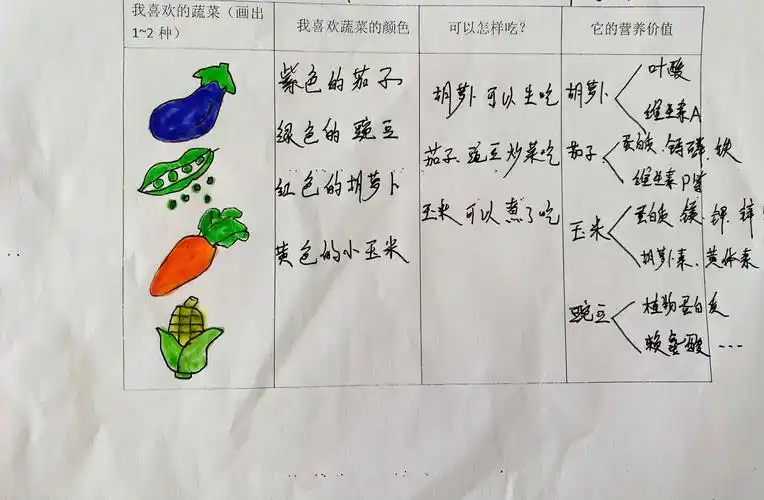 我喜欢的蔬菜（画出
1~2 种）
我喜欢蔬菜的颜色
可以怎样吃？
它的营养价值
紫色的茄子
绿色的豌豆
红色的胡萝卜
黄色的小玉米
胡萝卜可以生吃
茄子、豌豆炒菜吃
玉米可以煮了吃
胡萝卜
叶酸
维生素A
茄子
蛋白质、钙磷、铁
维生素P等
玉米
蛋白质、镁、钾、锌
胡萝卜素、黄体素
豌豆
植物蛋白质
赖氨酸 ……